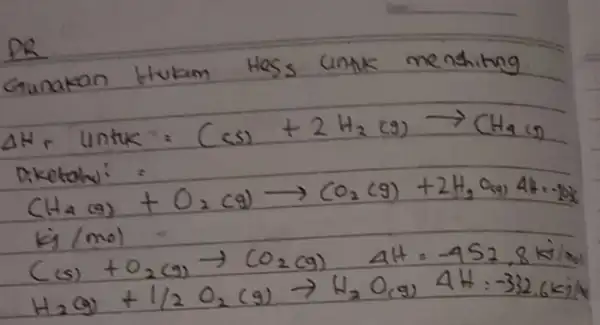 PR
Gunakan Hukum Hess untuk menghitung
ΔHr untuk : C(s) + 2 H₂ (g) → CH₄ (g)
Diketahui :
CH₄ (g) + O₂ (g) → CO₂ (g) + 2H₂O(g) ΔH =
kj /mol
C(s) + O₂ (g) → CO₂ (g) ΔH = -452,8 kj/mol
H₂(g) + 1/2 O₂ (g) → H₂O(g) ΔH : -332,6 kj/